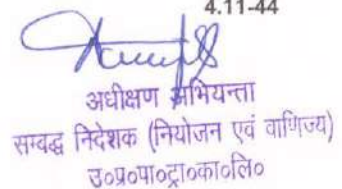 4.11-44
अधीक्षण अभियन्ता
सम्बद्ध निदेशक (नियोजन एवं वाणिज्य)
उ०प्र०पा०ट्रा०का०लि०